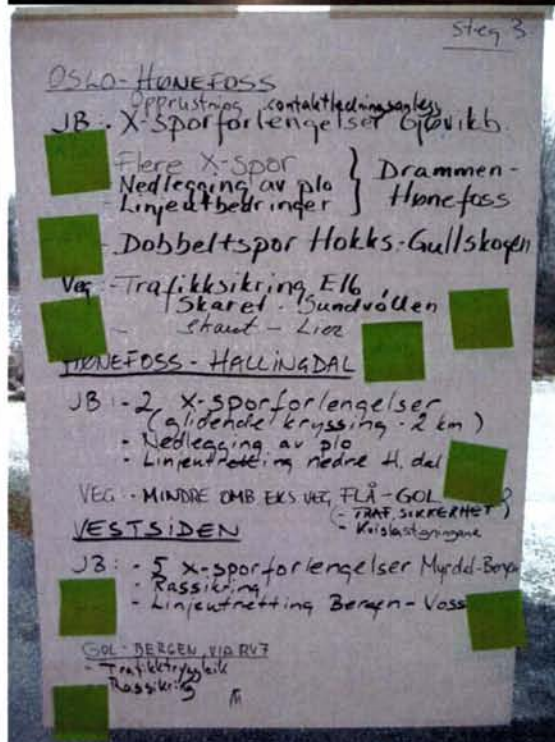 Steg 3
OSLO-HØNEFOSS
Opprustning contaktledningsanlegg
JB: - X-sporforlengelser Gjøvikb.
Flere X-spor
- Nedlegging av plo
- Linjeutbedringer
} Drammen-
Hønefoss
- Dobbeltspor Hokks.-Gullskogen
Veg: - Trafikksikring E16
Skaret - Sundvollen
- Skaret - Lier
HØNEFOSS - HALLINGDAL
JB: - 2 X-sporforlengelser
(glidende kryssing - 2 km)
- Nedlegging av plo
- Linjeutretting nedre H. dal
VEG: - MINDRE OMB EKS VEG, FLÅ-GOL
(- TRAF. SIKKERHET)
VESTSIDEN
JB: - 5 X-sporforlengelser Myrdal-Bergen
- Rassikring
- Linjeutretting Bergen - Voss
GOL - BERGEN VIA RV7
- Trafikktryggleik
Rassikring